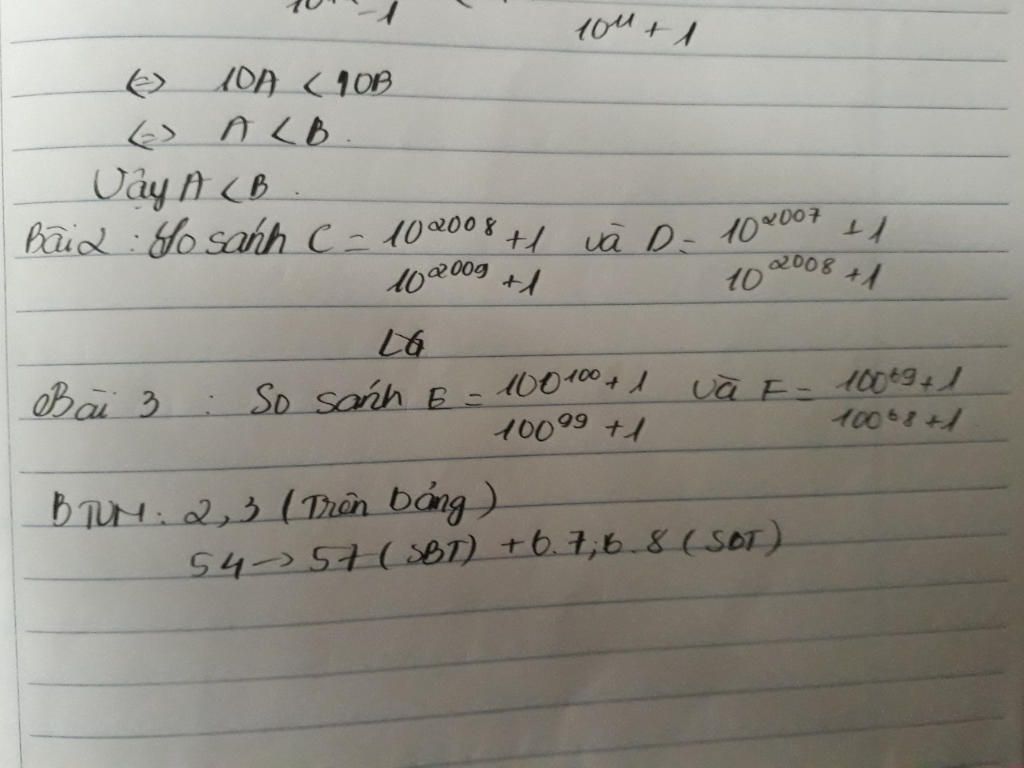 10¹¹ + 1
<=> 10A < 10B
<=> A < B.
Vậy A < B.
Bài 2 : So sánh C = (10²⁰⁰⁸ + 1)/(10²⁰⁰⁹ + 1) và D = (10²⁰⁰⁷ + 1)/(10²⁰⁰⁸ + 1)
LG
Bài 3 : So sánh E = (100¹⁰⁰ + 1)/(100⁹⁹ + 1) và F = (100⁶⁹ + 1)/(100⁶⁸ + 1)
BTVN: 2,3 (Trên bảng)
54 -> 57 (SBT) + 6.7; 6.8 (SBT)